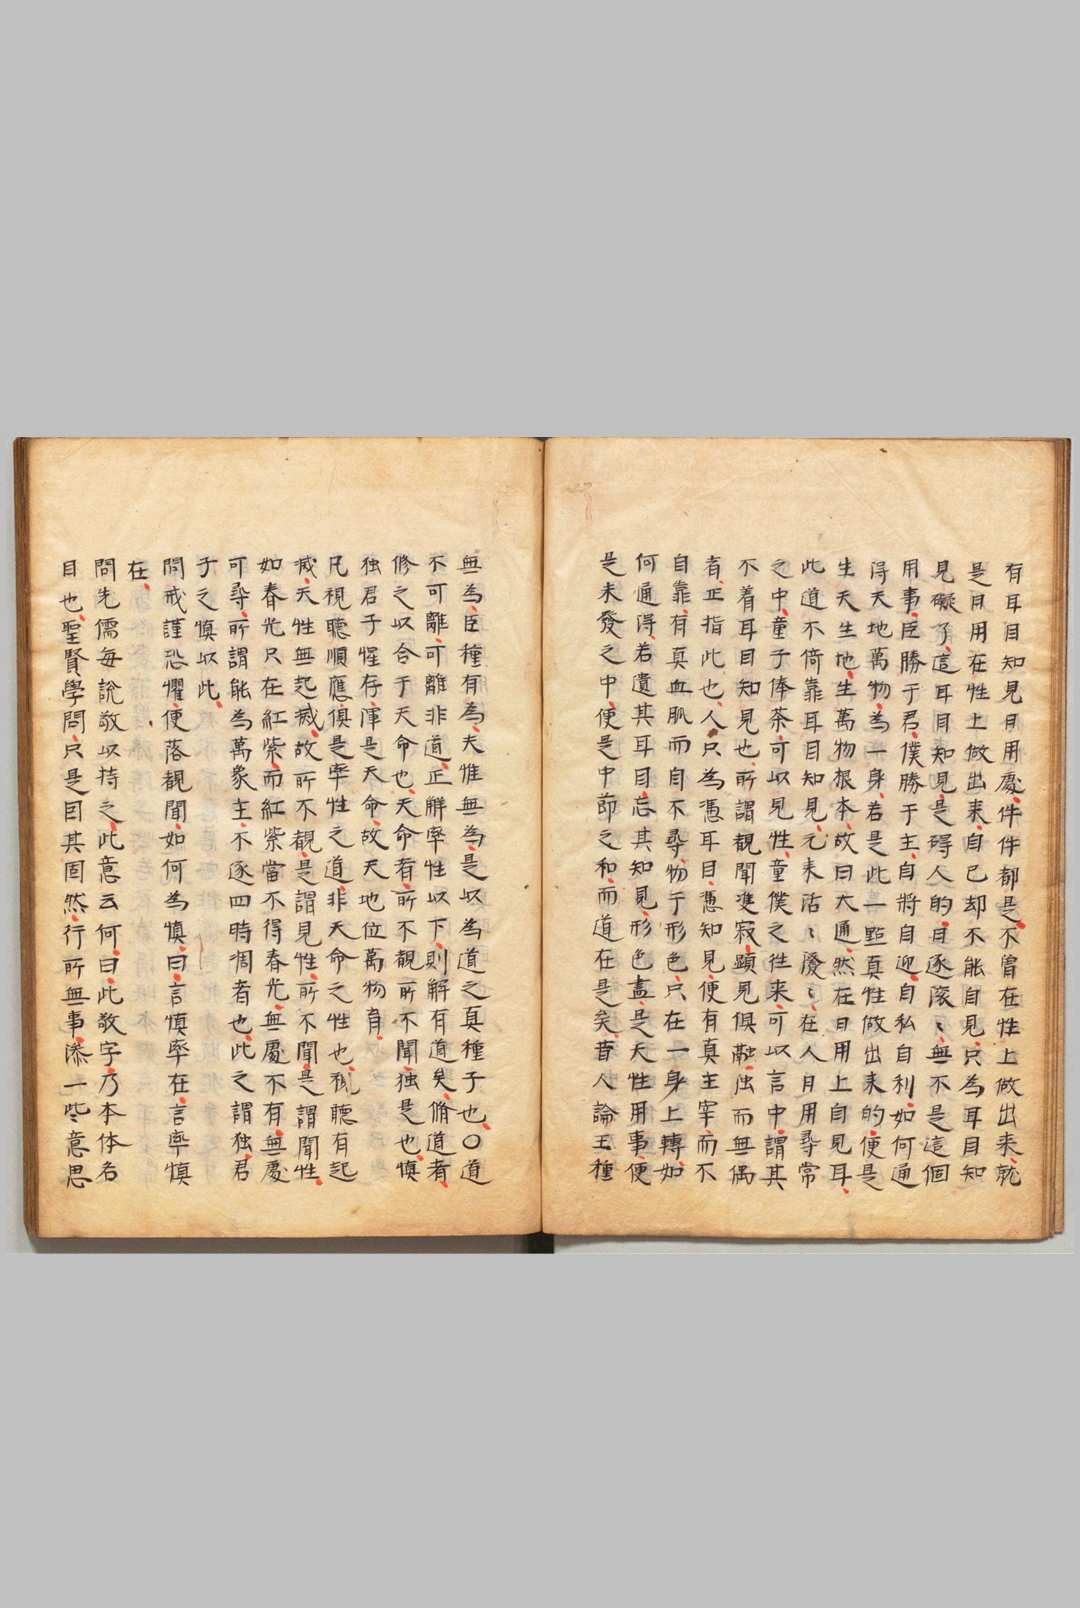 有耳目知見日用處件件都是不曾在性上做出來就
是日用在性上做出来自己却不能自見只為耳目知
見礙了這耳目知見是碍人的日逐滚〻無不是這個
用事臣勝于君僕勝于主自將自迎自私自利如何通
得天地萬物為一身若是此一點真性做出来的便是
生天生地生萬物根本故曰大通然在日用上自見耳
此道不倚靠耳目知見元来活〻潑〻在人日用尋常
之中童子俸茶可以見性童僕之往来可以言中謂其
不着耳目知見也所謂觀聞凄寂顕見俱融独而無偶
者正指此也人只為憑耳目憑知見便有真主宰而不
自靠有真血肌而自不尋物于形色只在一身上轉如
何通得若遺其耳目忘其知見形色盡是天性用事便
是未發之中便是中節之和而道在是矣昔人論王種
無為臣種有為夫惟無為是以為道之真種子也〇道
不可離可離非道正解率性以下則解有道矣脩道者
修之以合于天命也天命者所不覩所不聞独是也慎
独君子惺存渾是天命故天地位萬物育
凡視聽順應俱是率性之道非天命之性也視聽有起
滅天性無起滅故所不覩是謂見性所不聞是謂聞性
如春光只在紅紫而紅紫當不得春光無處不有無處
可尋所謂能為萬象主不逐四時凋者也此之謂独君
子之慎以此
問戒謹恐懼便落覩聞如何為慎曰言慎率在言率慎
在
問先儒每說敬以持之此意云何曰此敬字乃本体名
目也聖賢學問只是因其固然行所無事添一些意思